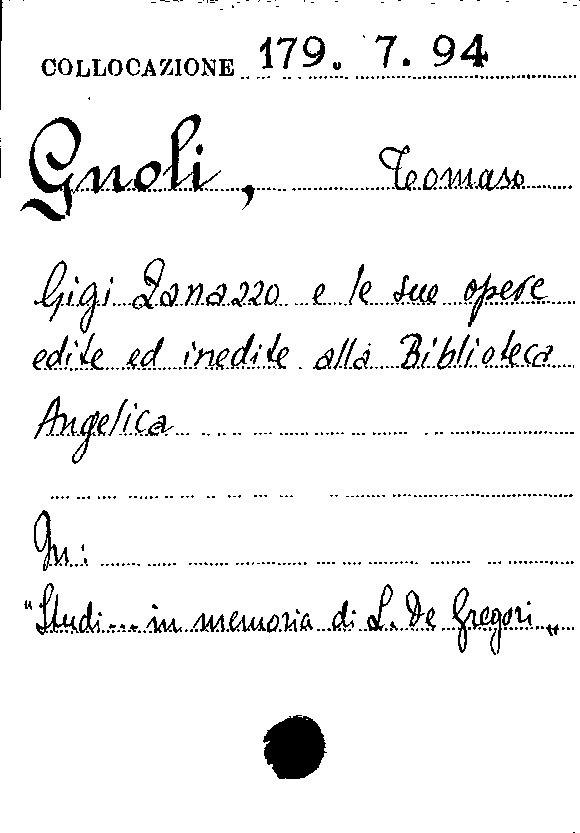 COLLOCAZIONE 179. 7. 94
Gnoli, Tomaso
Gigi Zanazzo e le sue opere
edite ed inedite alla Biblioteca
Angelica
In:
"Studi... in memoria di L. De Gregori„